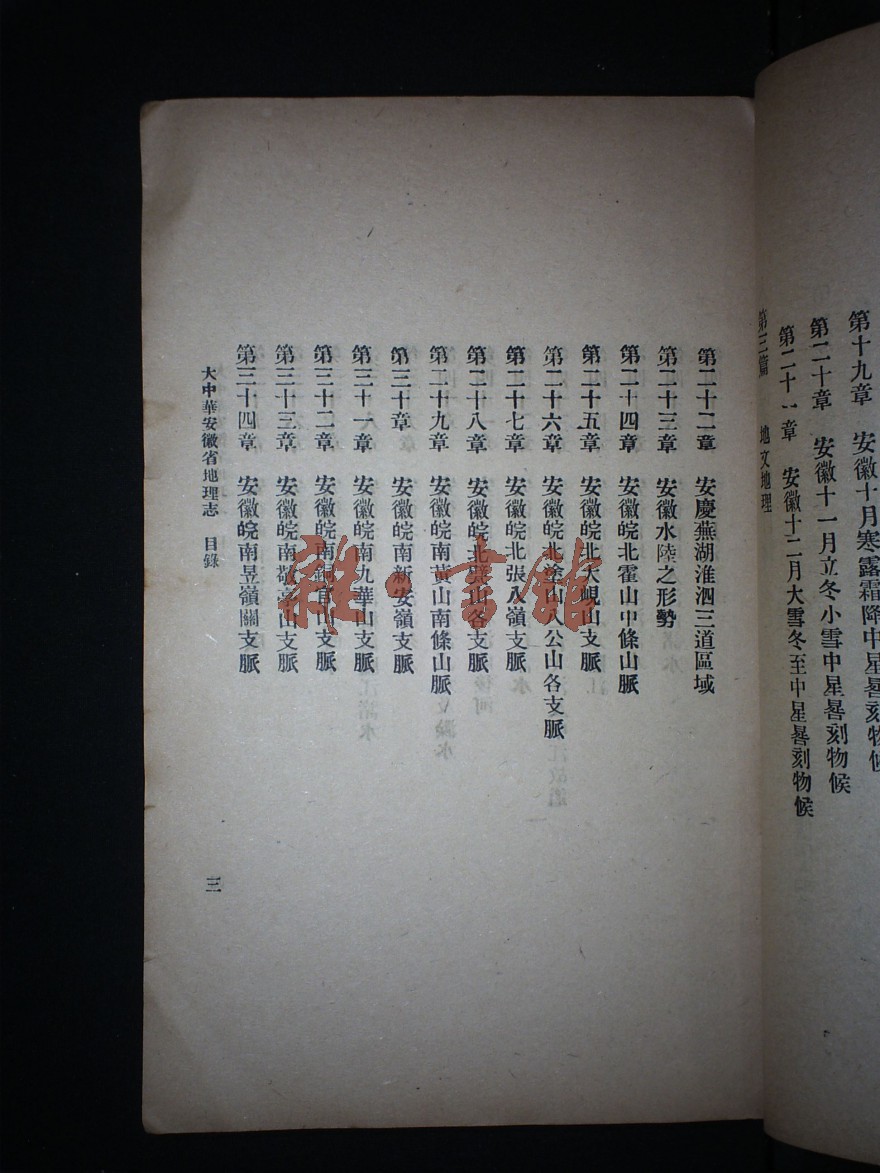 第十九章　安徽十月寒露霜降中星晷刻物候
第二十章　安徽十一月立冬小雪中星晷刻物候
第二十一章　安徽十二月大雪冬至中星晷刻物候
第三篇　地文地理
第二十二章　安慶蕪湖淮泗三道區域
第二十三章　安徽水陸之形勢
第二十四章　安徽皖北霍山中條山脈
第二十五章　安徽皖北大峴山支脈
第二十六章　安徽皖北塗山八公山各支脈
第二十七章　安徽皖北張八嶺支脈
第二十八章　安徽皖北山各支脈
第二十九章　安徽皖南黃山南條山脈
第三十章　安徽皖南新安嶺支脈
第三十一章　安徽皖南九華山支脈
第三十二章　安徽皖南銅官山支脈
第三十三章　安徽皖南敬亭山支脈
第三十四章　安徽皖南昱嶺關支脈
大中華安徽省地理志　目錄
三
雜·書館